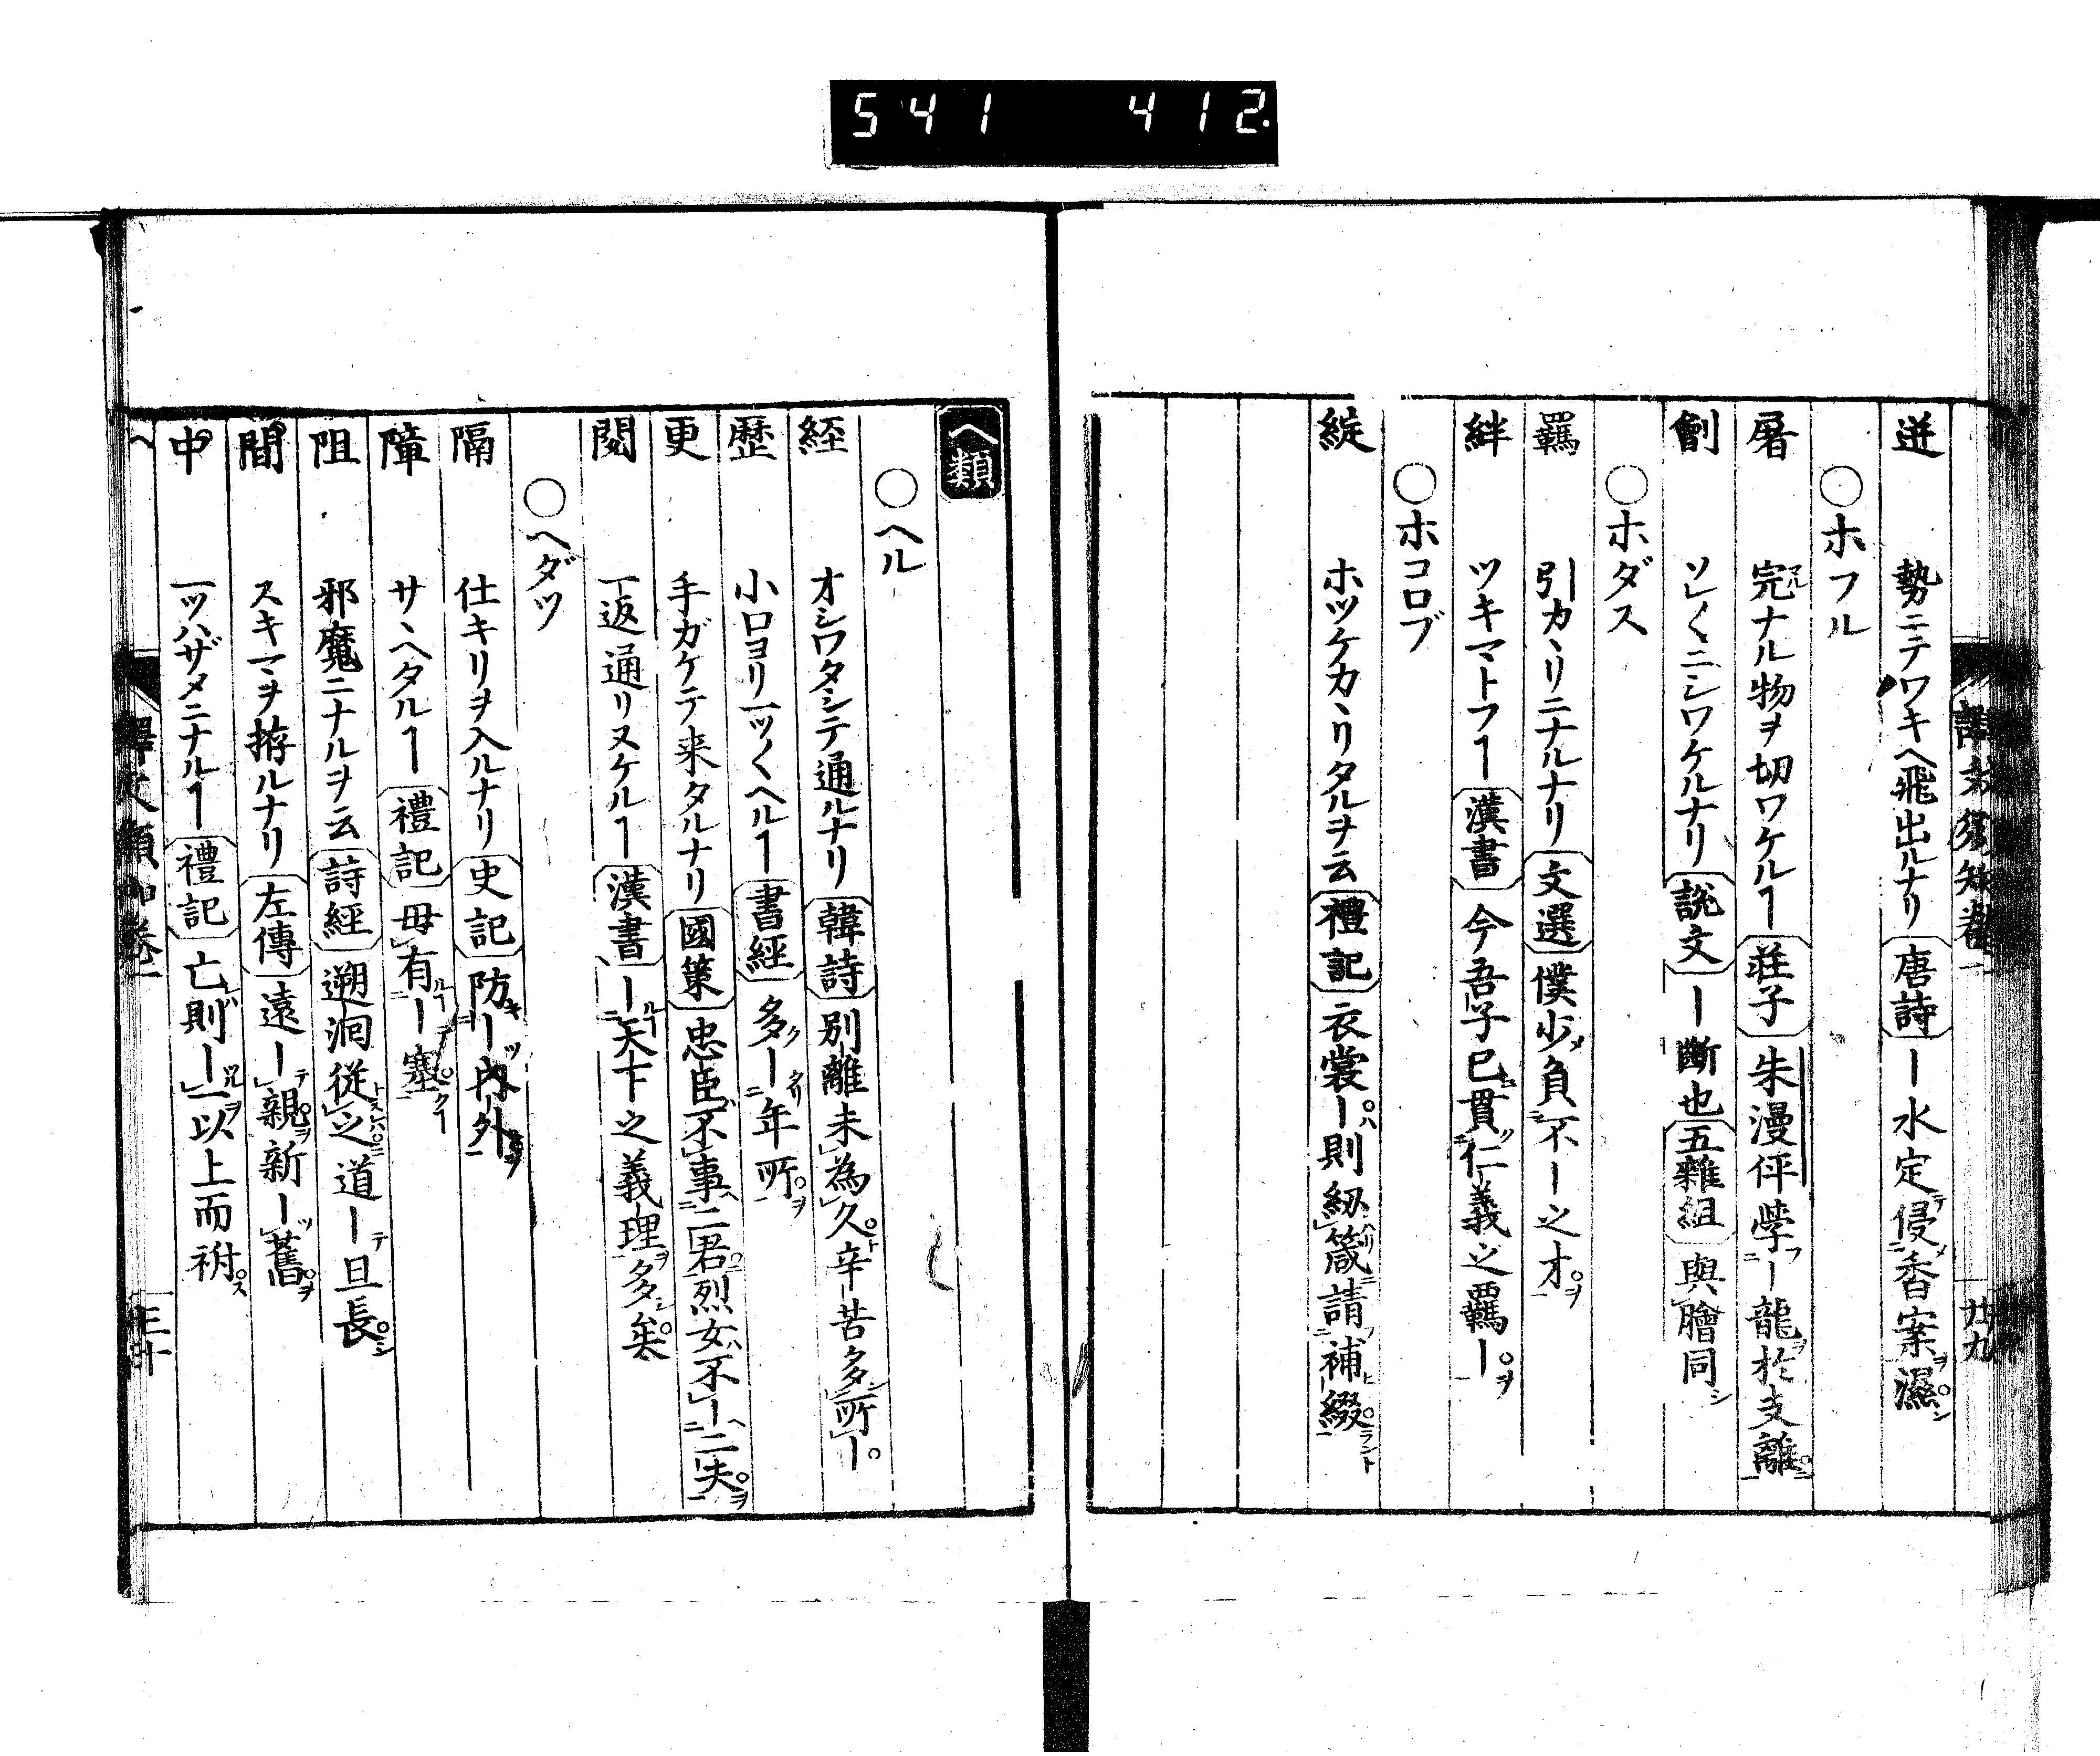 541 412.
譯文須知卷一 廿九
迸 勢ニテワキヘ飛出ルナリ 唐詩 ー水定侵香案濕
○ホフル
屠 完ナル物ヲ切ワケルヿ 荘子 朱漫伻學ー龍於支離
劊 ソレ〱ニシワケルナリ 説文 ー斷也 五雜組 與膾同
○ホダス
羈 引カヽリニナルナリ 文選 僕少負不ー之才
絆 ツキマトフヿ 漢書 今吾子已貫仁義之羈ー
○ホコロブ
綻 ホツケカヽリタルヲ云 禮記 衣裳ー則紉箴請補綴
ヘ類
○ヘル
経 オシワタシテ通ルナリ 韓詩 別離未為久辛苦多所ー
歴 小口ヨリ一ツ〱ヘルヿ 書經 多ー年所
更 手ガケテ来タルナリ 國策 忠臣不事二君烈女不ー二夫
閲 一返通リヌケルヿ 漢書 ー天下之義理多矣
○ヘダツ
隔 仕キリヲ入ルナリ 史記 防ー内外
障 サヽヘタルヿ 禮記 毋有ー塞
阻 邪魔ニナルヲ云 詩經 遡洄従之道ー且長
間 スキマヲ拵ルナリ 左傳 遠ー親新ー舊
中 一ツハザメニナルヿ 禮記 亡則ー一以上而祔
ヘ 譯文須知卷一 三十